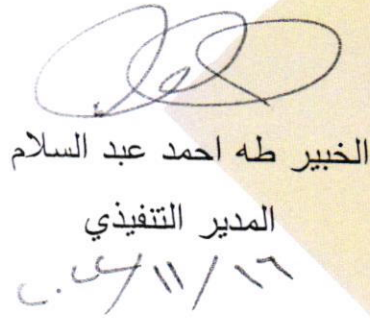 الخبير طه احمد عبد السلام
المدير التنفيذي
١٦/١١/